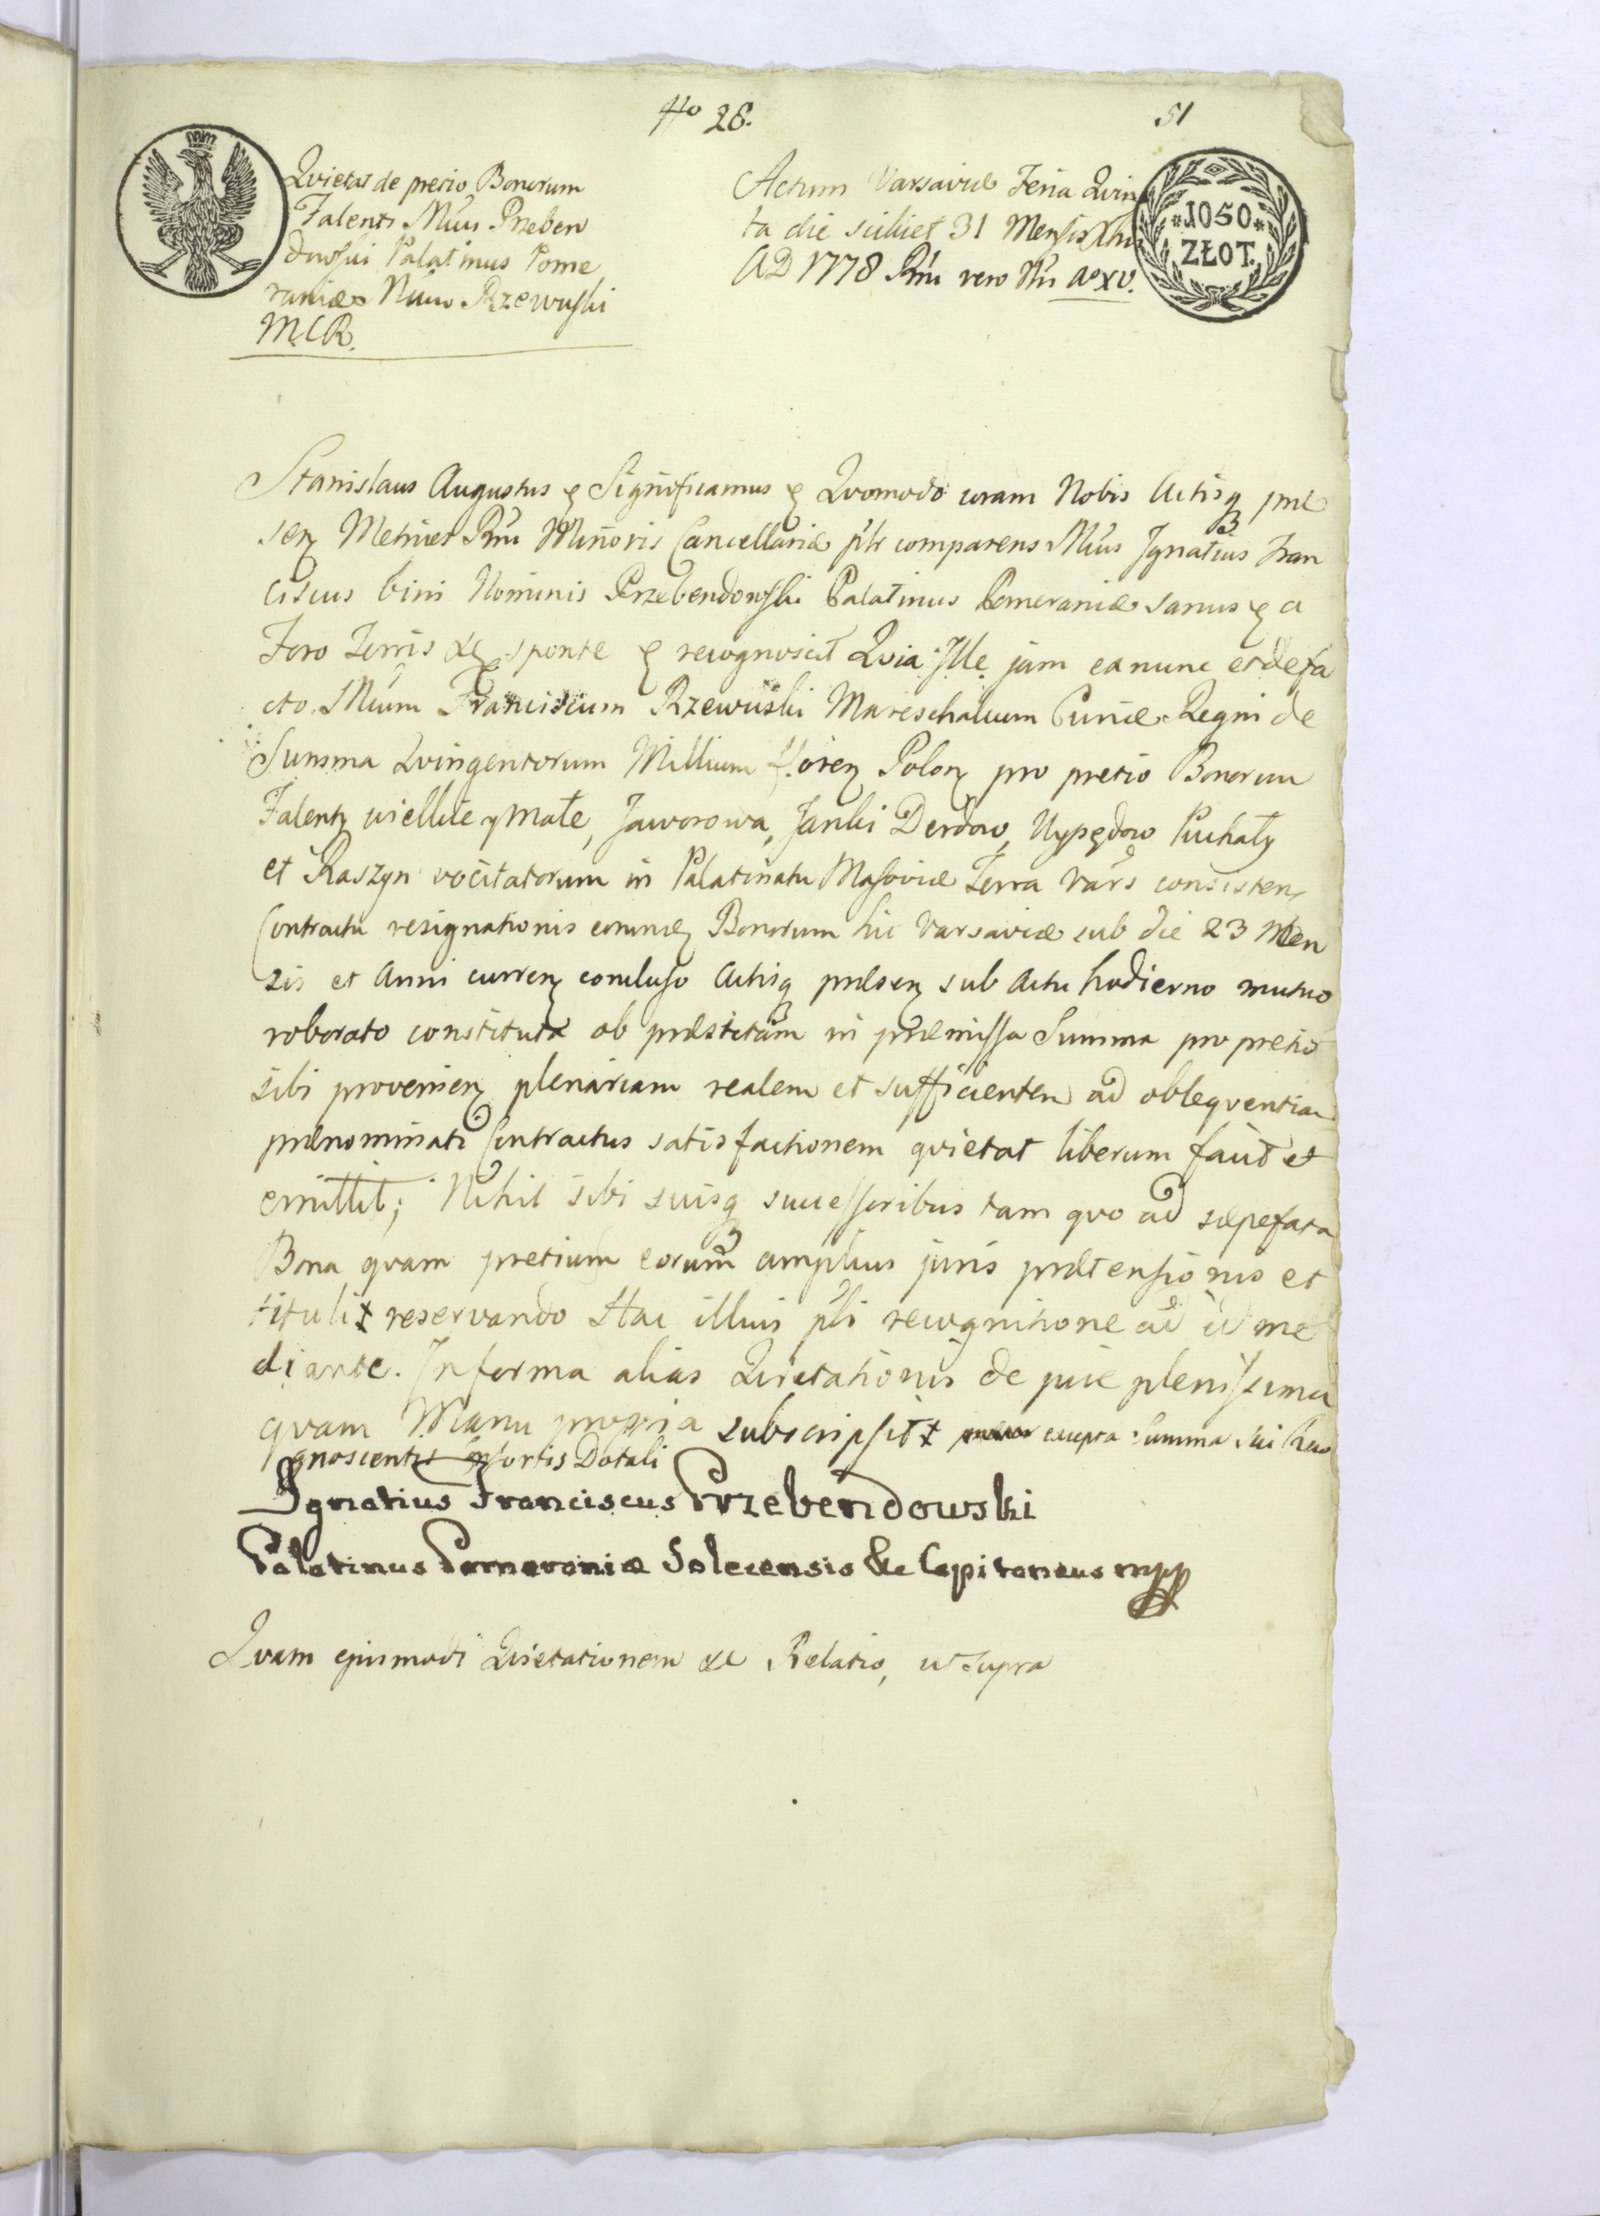 No 28.
51
Qvietat de pretio Bonorum
Falenti Mūus Przeben
dowski Palatinus Pome
raniæ Mūum Rzewuski
MCR.
Actum Varsaviæ Feria Qvin
ta die scilicet 31 Mensis Xbris
AD 1778 Rñi vero Nri Aº XV.
1050
ZŁOT.
Stanislaus Augustus & Significamus & Qvomodo coram Nobis Actisq præ
sen Metrices Rñi Minoris Cancellariæ pltr comparens Mūus Ignatius Fran
ciscus bini Nominis Przebendowski Palatinus Pomeraniæ sanus & a
Foro Terris &c sponte & recognoscit Qvia Ille jam ex nunc et de fa
cto Mūum Franciscum Rzewuski Mareschalcum Curiæ Regni de
Summa Qvingentorum Millium floren Polon pro pretio Bonorum
Falenty wielkie y Małe, Jaworowa, Janki Derdow, Wypędow Puchały
et Raszyn vocitatorum in Palatinatu Masoviæ Terra Vars consisten
Contractu resignationis eorund Bonorum hic Varsaviæ sub die 23 Men
sis et Anni curren concluso Actisq præsen sub Actu hodierno mutuo
roborato constituta ob præstitam in præmissa Summa pro pretio
sibi provenien plenariam realem et sufficientem ad obleqventiam
prænominati Contractus satisfactionem qvietat liberum facit et
emittit; Nihil sibi suisq successoribus tam qvo ad sæpefata
Bona qvam pretium eorum amplius juris prætensionis et
tituli x reservando Hac illius pli recognitione ad id me
diante. In forma alias Qvietationis de jure plenissima
qvam Manu propria subscripsit x excepta Summa sui Reco
gnoscentis Consortis Dotali
Ignatius Franciscus Przebendowski
Palatinus Pomeraniæ Solecensis &c Capitaneus mpp
Qvam ejusmodi Qvietationem &c Relatio, ut supra